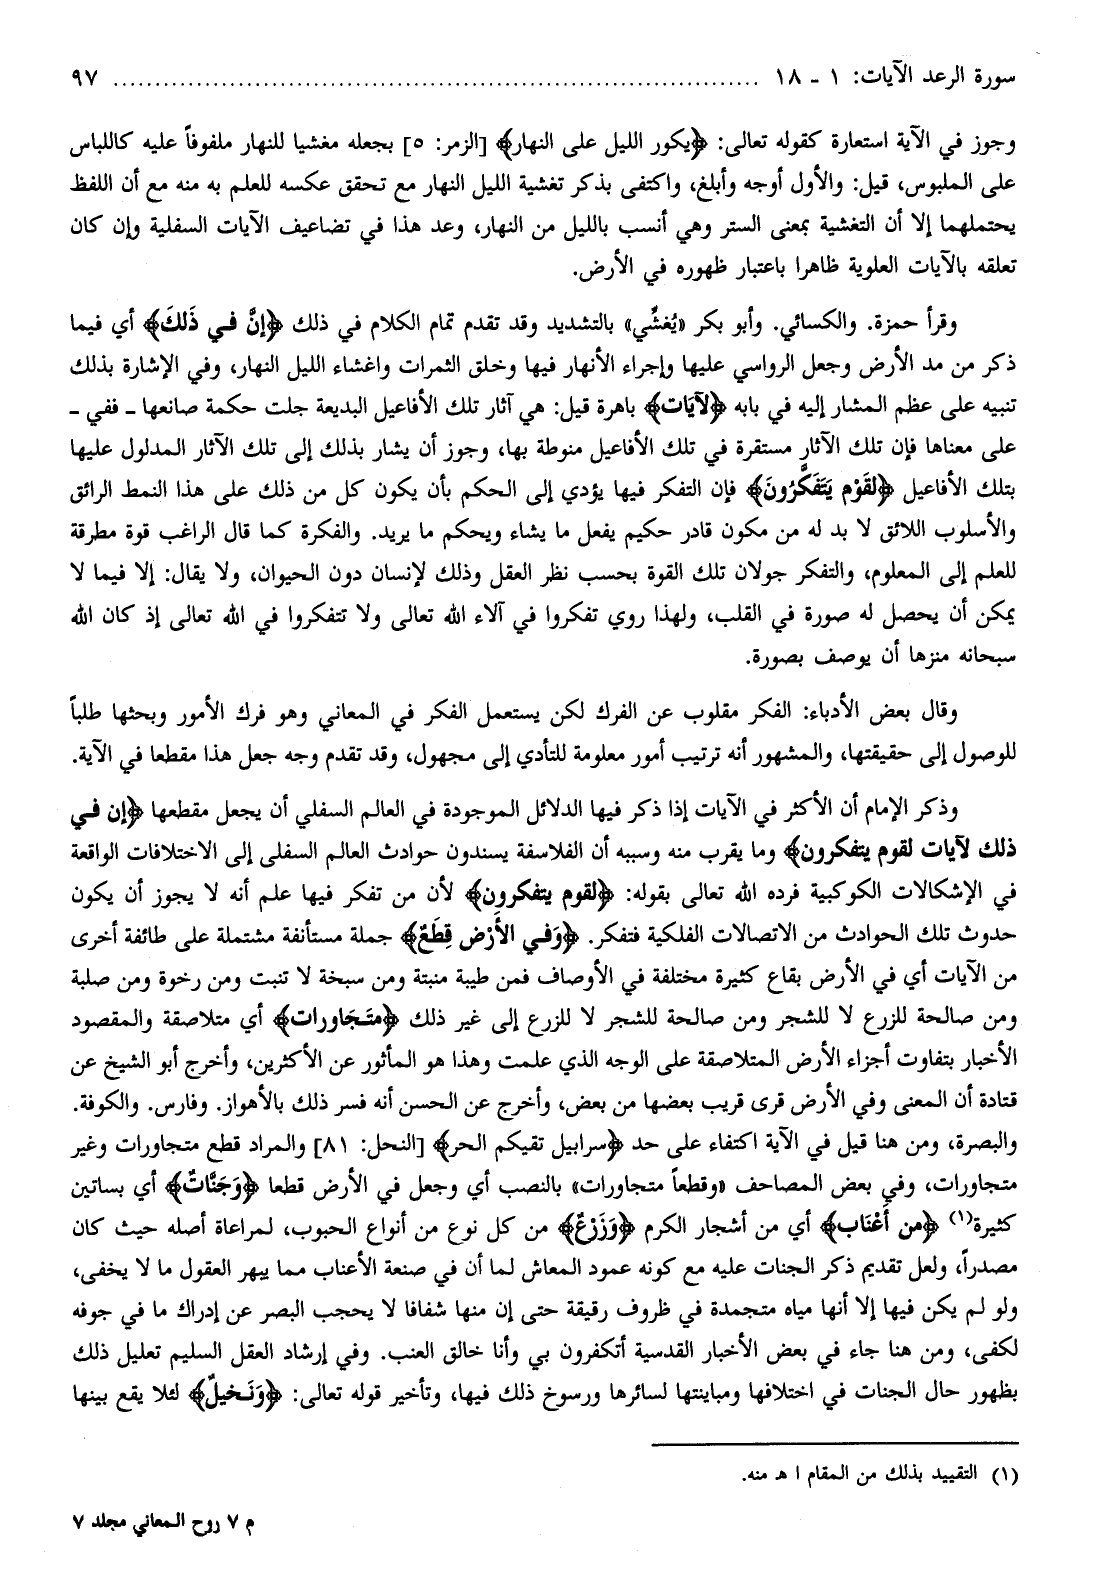 سورة الرعد الآيات: ١ - ١٨ ............................................................ ٩٧
وجوز في الآية استعارة كقوله تعالى: ﴿يكور الليل على النهار﴾ [الزمر: ٥] بجعله مغشيا للنهار ملفوفاً عليه كاللباس
على الملبوس، قيل: والأول أوجه وأبلغ، واكتفى بذكر تغشية الليل النهار مع تحقق عكسه للعلم به منه مع أن اللفظ
يحتملهما إلا أن التغشية بمعنى الستر وهي أنسب بالليل من النهار، وعد هذا في تضاعيف الآيات السفلية وإن كان
تعلقه بالآيات العلوية ظاهرا باعتبار ظهوره في الأرض.
وقرأ حمزة. والكسائي. وأبو بكر «يُغشِّي» بالتشديد وقد تقدم تمام الكلام في ذلك ﴿إنَّ في ذَلكَ﴾ أي فيما
ذكر من مد الأرض وجعل الرواسي عليها وإجراء الأنهار فيها وخلق الثمرات واغشاء الليل النهار، وفي الإشارة بذلك
تنبيه على عظم المشار إليه في بابه ﴿لآيَات﴾ باهرة قيل: هي آثار تلك الأفاعيل البديعة جلت حكمة صانعها ـ ففي ـ
على معناها فإن تلك الآثار مستقرة في تلك الأفاعيل منوطة بها، وجوز أن يشار بذلك إلى تلك الآثار المدلول عليها
بتلك الأفاعيل ﴿لقَوْم يَتَفَكَّرُونَ﴾ فإن التفكر فيها يؤدي إلى الحكم بأن يكون كل من ذلك على هذا النمط الرائق
والأسلوب اللائق لا بد له من مكون قادر حكيم يفعل ما يشاء ويحكم ما يريد. والفكرة كما قال الراغب قوة مطرقة
للعلم إلى المعلوم، والتفكر جولان تلك القوة بحسب نظر العقل وذلك لإنسان دون الحيوان، ولا يقال: إلا فيما لا
يمكن أن يحصل له صورة في القلب، ولهذا روي تفكروا في آلاء الله تعالى ولا تتفكروا في الله تعالى إذ كان الله
سبحانه منزها أن يوصف بصورة.
وقال بعض الأدباء: الفكر مقلوب عن الفرك لكن يستعمل الفكر في المعاني وهو فرك الأمور وبحثها طلباً
للوصول إلى حقيقتها، والمشهور أنه ترتيب أمور معلومة للتأدي إلى مجهول، وقد تقدم وجه جعل هذا مقطعا في الآية.
وذكر الإمام أن الأكثر في الآيات إذا ذكر فيها الدلائل الموجودة في العالم السفلي أن يجعل مقطعها ﴿إن في
ذلك لآيات لقوم يتفكرون﴾ وما يقرب منه وسببه أن الفلاسفة يسندون حوادث العالم السفلى إلى الاختلافات الواقعة
في الإشكالات الكوكبية فرده الله تعالى بقوله: ﴿لقوم يتفكرون﴾ لأن من تفكر فيها علم أنه لا يجوز أن يكون
حدوث تلك الحوادث من الاتصالات الفلكية فتفكر. ﴿وَفي الأَرْض قِطَعٌ﴾ جملة مستأنفة مشتملة على طائفة أخرى
من الآيات أي في الأرض بقاع كثيرة مختلفة في الأوصاف فمن طيبة منبتة ومن سبخة لا تنبت ومن رخوة ومن صلبة
ومن صالحة للزرع لا للشجر ومن صالحة للشجر لا للزرع إلى غير ذلك ﴿متَجَاورات﴾ أي متلاصقة والمقصود
الأخبار بتفاوت أجزاء الأرض المتلاصقة على الوجه الذي علمت وهذا هو المأثور عن الأكثرين، وأخرج أبو الشيخ عن
قتادة أن المعنى وفي الأرض قرى قريب بعضها من بعض، وأخرج عن الحسن أنه فسر ذلك بالأهواز. وفارس. والكوفة.
والبصرة، ومن هنا قيل في الآية اكتفاء على حد ﴿سرابيل تقيكم الحر﴾ [النحل: ٨١] والمراد قطع متجاورات وغير
متجاورات، وفي بعض المصاحف «وقطعاً متجاورات» بالنصب أي وجعل في الأرض قطعا ﴿وَجَنَّاتٌ﴾ أي بساتين
كثيرة(١) ﴿من أَعْنَاب﴾ أي من أشجار الكرم ﴿وَزَرْعٌ﴾ من كل نوع من أنواع الحبوب، لمراعاة أصله حيث كان
مصدراً، ولعل تقديم ذكر الجنات عليه مع كونه عمود المعاش لما أن في صنعة الأعناب مما يبهر العقول ما لا يخفى،
ولو لم يكن فيها إلا أنها مياه متجمدة في ظروف رقيقة حتى إن منها شفافا لا يحجب البصر عن إدراك ما في جوفه
لكفى، ومن هنا جاء في بعض الأخبار القدسية أتكفرون بي وأنا خالق العنب. وفي إرشاد العقل السليم تعليل ذلك
بظهور حال الجنات في اختلافها ومباينتها لسائرها ورسوخ ذلك فيها، وتأخير قوله تعالى: ﴿وَنَخيلٌ﴾ لئلا يقع بينها
(١) التقييد بذلك من المقام ا هـ منه.
م ٧ روح المعاني مجلد ٧